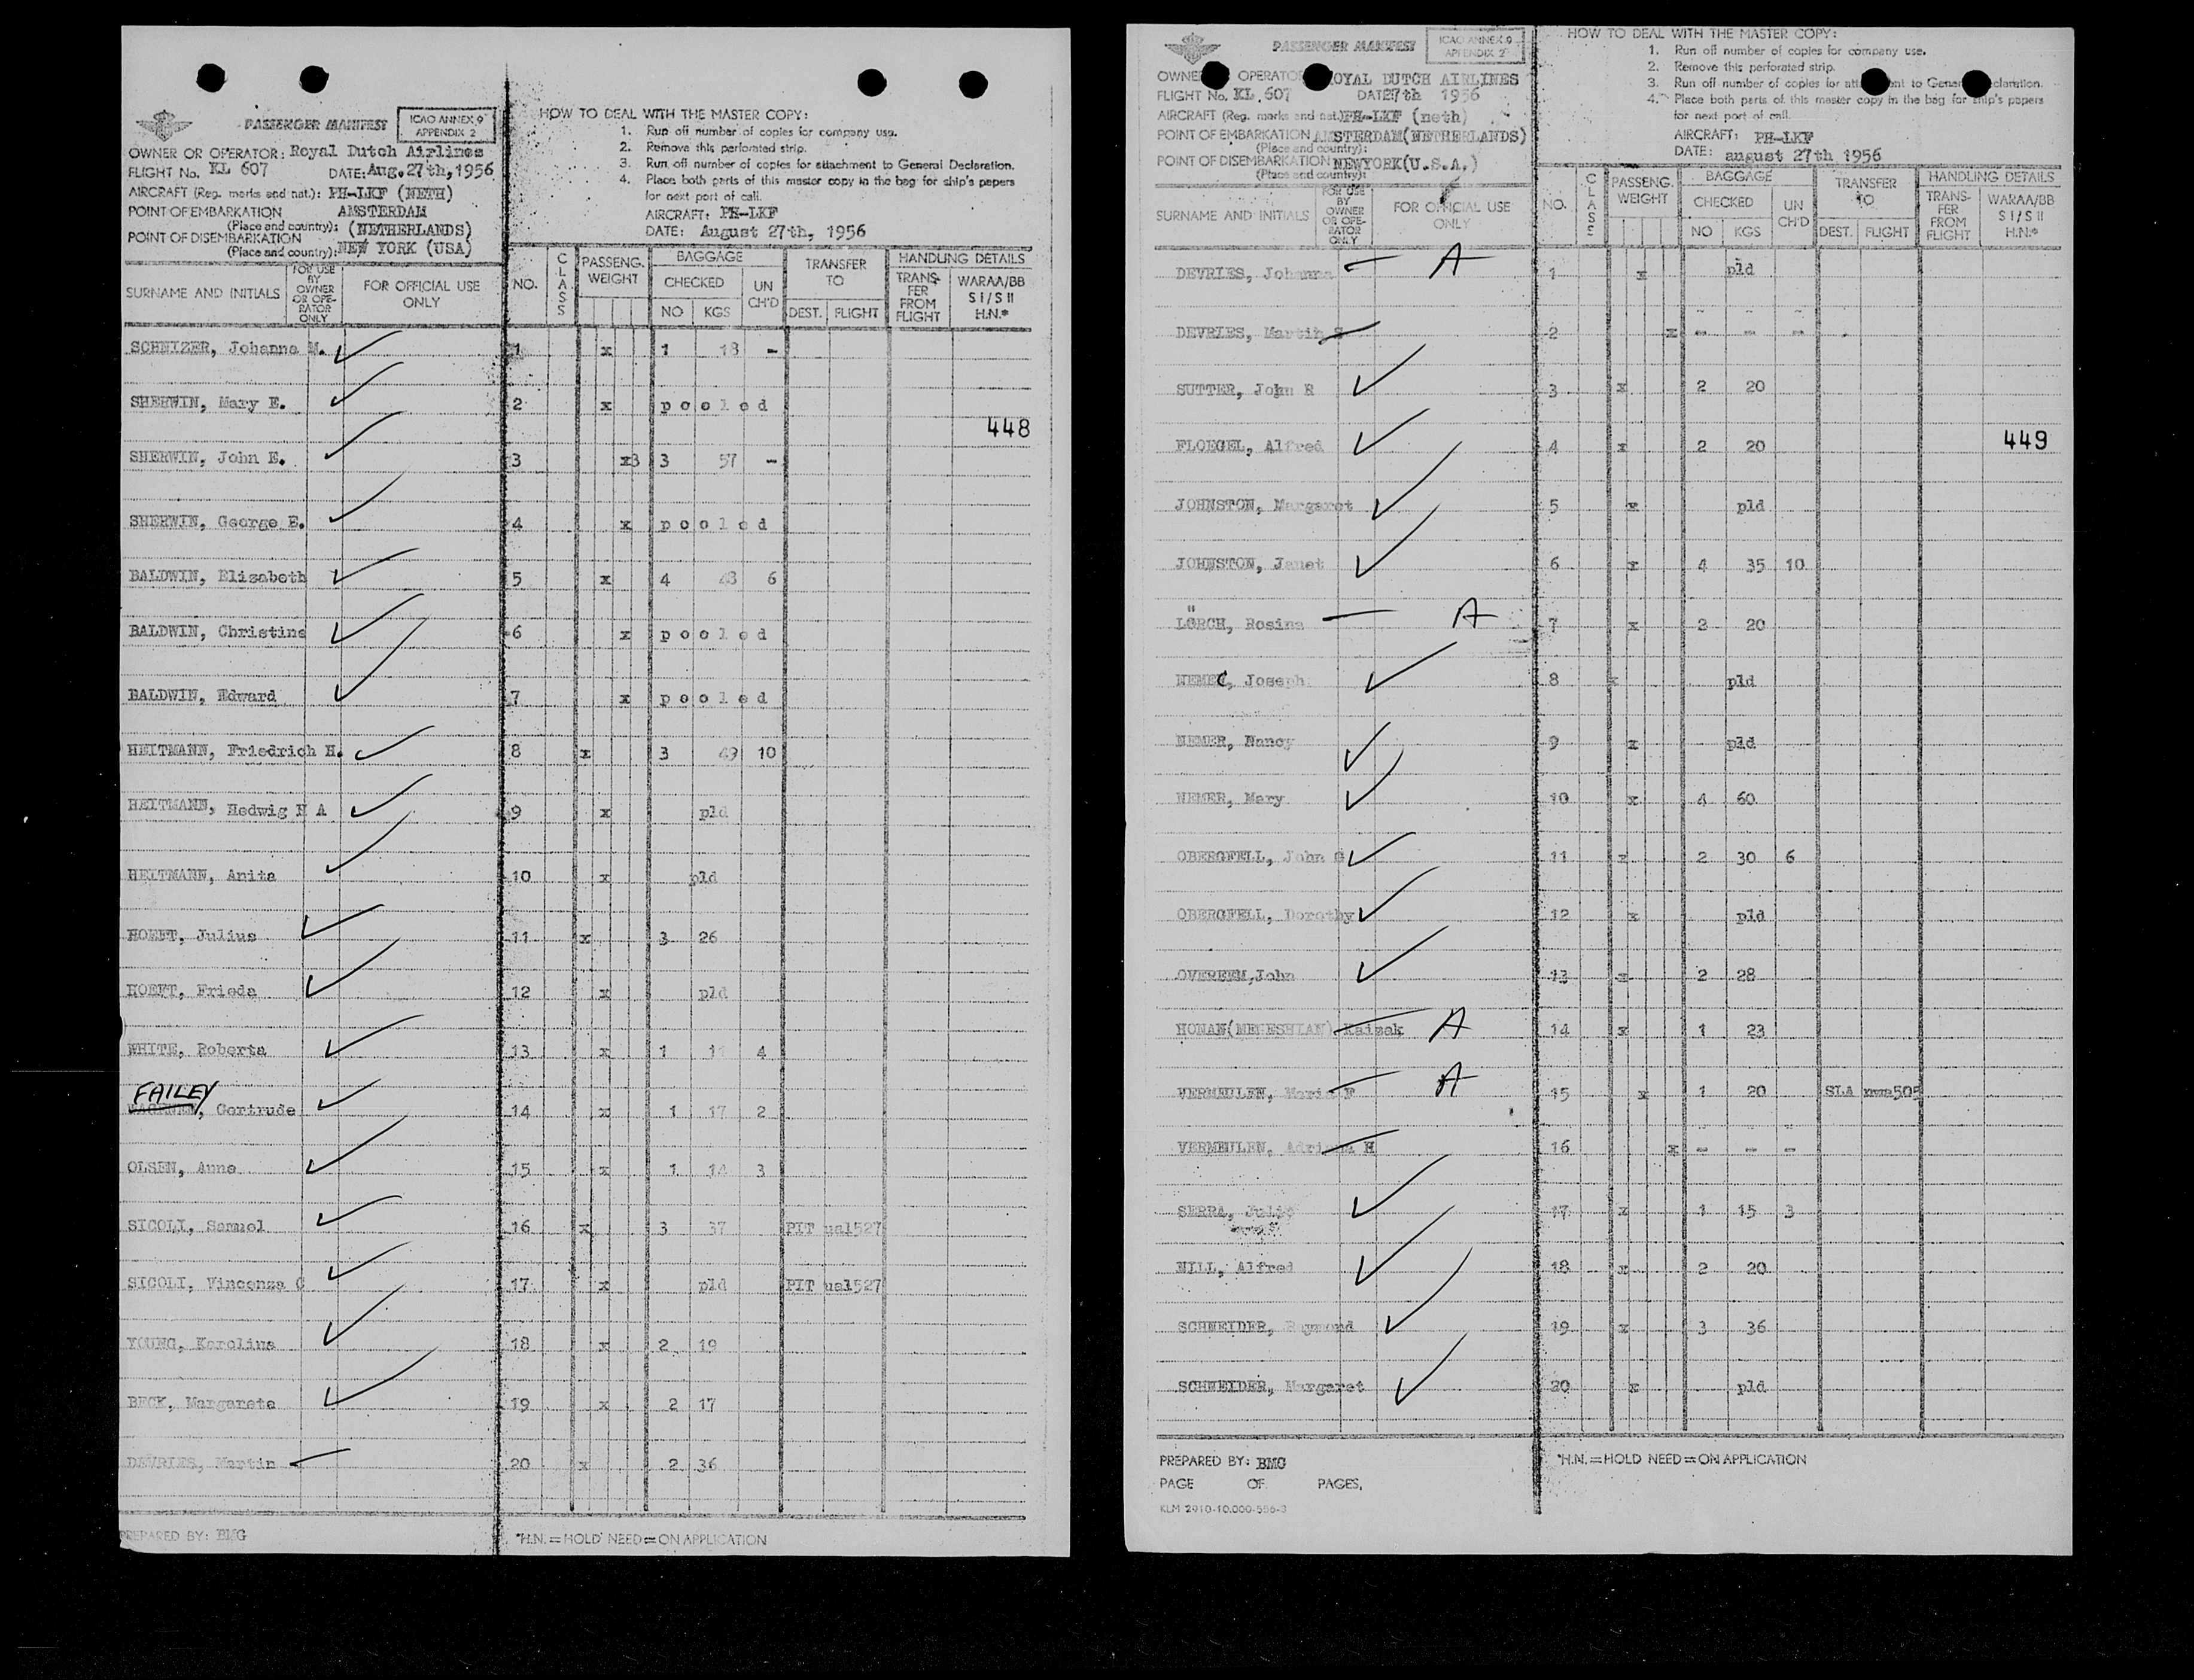 PASSENGER MANIFEST
ICAO ANNEX 9
APPENDIX 2
OWNER OR OPERATOR: Royal Dutch Airlines
FLIGHT No. KL 607 DATE: Aug. 27th, 1956
AIRCRAFT (Reg. marks and nat.): PH-LKF (NETH)
POINT OF EMBARKATION AMSTERDAM
(Place and country): (NETHERLANDS)
POINT OF DISEMBARKATION
(Place and country): NEW YORK (USA)
HOW TO DEAL WITH THE MASTER COPY:
1. Run off number of copies for company use.
2. Remove this perforated strip.
3. Run off number of copies for attachment to General Declaration.
4. Place both parts of this master copy in the bag for ship's papers
for next port of call.
AIRCRAFT: PH-LKF
DATE: August 27th, 1956
SURNAME AND INITIALS
FOR USE BY OWNER OR OPE-RATOR ONLY
FOR OFFICIAL USE ONLY
NO.
CLASS
PASSENG. WEIGHT
BAGGAGE
CHECKED
NO KGS
UN CH'D
TRANSFER TO
DEST. FLIGHT
HANDLING DETAILS
TRANS-FER FROM FLIGHT
WARAA/BB S I/S II H.N.*
SCHNIZER, Johanna M. 1 x 1 18 -
SHERWIN, Mary E. 2 x pooled
448
SHERWIN, John E. 3 x3 3 57 -
SHERWIN, George E. 4 x pooled
BALDWIN, Elizabeth 5 x 4 6
BALDWIN, Christine 6 x pooled
BALDWIN, Edward 7 x pooled
HEITMANN, Friedrich H. 8 x 3 49 10
HEITMANN, Hedwig H A 9 x pld
HEITMANN, Anita 10 x pld
HOEFT, Julius 11 x 3 26
HOEFT, Frieda 12 x pld
WHITE, Roberta 13 x 1 11 4
FAILEY
Gertrude 14 x 1 17 2
OLSEN, Anne 15 x 1 14 3
SICOLI, Samuel 16 x 3 37 PIT ual527
SICOLI, Vincenza C 17 x pld PIT ual527
YOUNG, Karolina 18 x 2 19
BECK, Margarete 19 x 2 17
DEVRIES, Martin 20 x 2 36
PREPARED BY: BMG
*H.N. = HOLD NEED = ON APPLICATION
PASSENGER MANIFEST
ICAO ANNEX 9
APPENDIX 2
OWNER OPERATOR ROYAL DUTCH AIRLINES
FLIGHT No. KL 607 DATE 27th 1956
AIRCRAFT (Reg. marks and nat.) PH-LKF (neth)
POINT OF EMBARKATION AMSTERDAM(NETHERLANDS)
(Place and country):
POINT OF DISEMBARKATION NEWYORK(U.S.A.)
(Place and country):
HOW TO DEAL WITH THE MASTER COPY:
1. Run off number of copies for company use.
2. Remove this perforated strip.
3. Run off number of copies for attachment to General Declaration.
4. Place both parts of this master copy in the bag for ship's papers
for next port of call.
AIRCRAFT: PH-LKF
DATE: august 27th 1956
SURNAME AND INITIALS
FOR USE BY OWNER OR OPE-RATOR ONLY
FOR OFFICIAL USE ONLY
NO.
CLASS
PASSENG. WEIGHT
BAGGAGE
CHECKED
NO KGS
UN CH'D
TRANSFER TO
DEST. FLIGHT
HANDLING DETAILS
TRANS-FER FROM FLIGHT
WARAA/BB S I/S II H.N.*
DEVRIES, Johanna A 1 x pld
DEVRIES, Martin 2 x - - -
SUTTER, John R 3 x 2 20
FLOEGEL, Alfred 4 x 2 20
449
JOHNSTON, Margaret 5 x pld
JOHNSTON, Janet 6 x 4 35 10
LÖRCH, Rosina A 7 x 2 20
NEMEC, Joseph 8 x pld
NEMER, Nancy 9 x pld
NEMER, Mary 10 x 4 60
OBERGFELL, John G 11 x 2 30 6
OBERGFELL, Dorothy 12 x pld
OVEREEM,John 13 x 2 28
HOMAN(MEHESHIAN) Kaizak A 14 x 1 23
VERMEULEN, Maria F A 15 x 1 20 SLA nwa505
VERMEULEN, Adriana H 16 x - - -
SERRA, Julio 17 x 1 15 3
HILL, Alfred 18 x 2 20
SCHNEIDER, Raymond 19 x 3 36
SCHNEIDER, Margaret 20 x pld
PREPARED BY: BMG
PAGE OF PAGES,
KLM 2910-10.000-556-3
*H.N. = HOLD NEED = ON APPLICATION